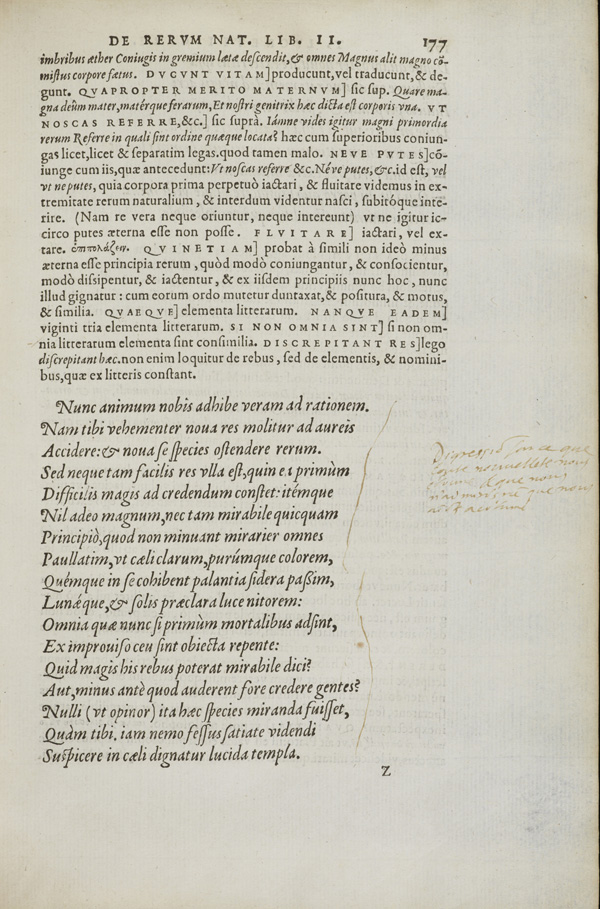 DE RERVM NAT. LIB. II. 177
imbribus æther Coniugis in gremium lætæ descendit, & omnes Magnus alit magno cõ-
mistus corpore fœtus. DVCVNT VITAM] producunt, vel traducunt, & de-
gunt. QVAPROPTER MERITO MATERNVM] sic sup. Quare ma-
gna deûm mater, matérque ferarum, Et nostri genitrix hæc dicta est corporis vna. VT
NOSCAS REFERRE, &c.] sic suprà. Iámne vides igitur magni primordia
rerum Referre in quali sint ordine quæque locata? hæc cum superioribus coniun-
gas licet, licet & separatim legas. quod tamen malo. NEVE PVTES] cõ-
iunge cum iis, quæ antecedunt: Vt noscas referre &c. Néve putes, &c. id est, vel
vt ne putes, quia corpora prima perpetuò iactari, & fluitare videmus in ex-
tremitate rerum naturalium, & interdum videntur nasci, subitóque inte-
rire. (Nam re vera neque oriuntur, neque intereunt) vt ne igitur ic-
circo putes æterna esse non posse. FLVITARE] iactari, vel ex-
tare. ἐπιπολάζειν. QVINETIAM] probat à simili non ideò minus
æterna esse principia rerum, quòd modò coniungantur, & consocientur,
modò dissipentur, & iactentur, & ex iisdem principiis nunc hoc, nunc
illud gignatur: cum eorum ordo mutetur duntaxat, & positura, & motus,
& similia. QVAEQVE] elementa litterarum. NANQVE EADEM]
viginti tria elementa litterarum. SI NON OMNIA SINT] si non om-
nia litterarum elementa sint consimilia. DISCREPITANT RES] lego
discrepitant hæc. non enim loquitur de rebus, sed de elementis, & nomini-
bus, quæ ex litteris constant.
Nunc animum nobis adhibe veram ad rationem.
Nam tibi vehementer noua res molitur ad aureis
Accidere: & noua se species ostendere rerum.
Sed neque tam facilis res vlla est, quin ea primùm
Difficilis magis ad credendum constet: itémque
Nil adeo magnum, nec tam mirabile quicquam
Principiò, quod non minuant mirarier omnes
Paullatim, vt cæli clarum, purúmque colorem,
Quémque in se cohibent palantia sidera paßim,
Lunæque, & solis præclara luce nitorem:
Omnia quæ nunc si primùm mortalibus adsint,
Ex improuiso ceu sint obiecta repente:
Quid magis his rebus poterat mirabile dici?
Aut, minus antè quod auderent fore credere gentes?
Nulli (vt opinor) ita hæc species miranda fuisset,
Quàm tibi. iam nemo fessus satiate videndi
Suspicere in cæli dignatur lucida templa.
Z